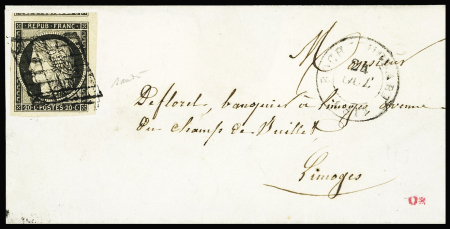 REPUB. FRANC.
20 C POSTES 20 C
Monsieur
24
OCT.
Defloret, banquier à Limoges avenue
du Champ de Juillet,
Limoges